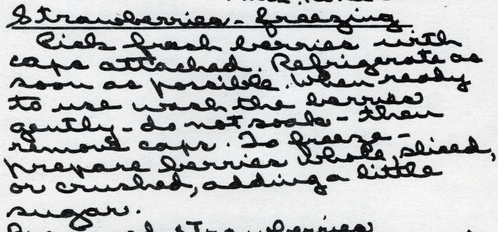 Strawberries - freezing
Pick fresh berries with
caps attached. Refrigerate as
soon as possible. When ready
to use wash the berries
gently - do not soak - then
remove caps. To freeze -
prepare berries whole, sliced,
or crushed, adding a little
sugar.
Strawberries